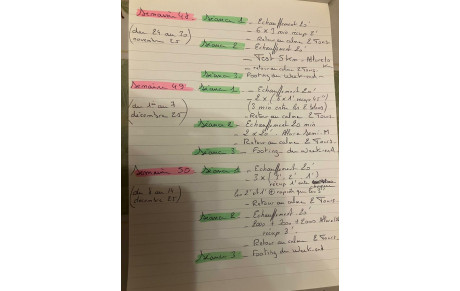 Semaine 48 Séance 1 - Echauffement 20'
- 6 x 3 min récup 2'
(du 24 au 30 - Retour au calme 2 Tours
novembre 25) Séance 2 - Echauffement 20'
- Test 5km - Allure
- retour au calme 2 Tours
Séance 3 - Footing du week-end
Semaine 49 Séance 1 - Echauffement 20'
- 2 x ( x 1' récup 45")
(du 1er au 7 (3 min entre les 2 blocs)
décembre 25) - Retour au calme 2 Tours
Séance 2 - Echauffement 20 min
- 2 x 20' Allure Semi-M
- Retour au calme 2 Tours
Séance 3 - Footing du week-end
Semaine 50 Séance 1 - Echauffement 20'
- 3 x (3', 2', 1')
(du 8 au 14 récup 1' entre
décembre 25) les 2' et 1' rapide que les 3'
- Retour au calme 2 Tours
Séance 2 - Echauffement 20
2000 1 2000 1 2000 Allure
récup 3'
- Retour au calme 2 Tours
Séance 3 - Footing du week-end